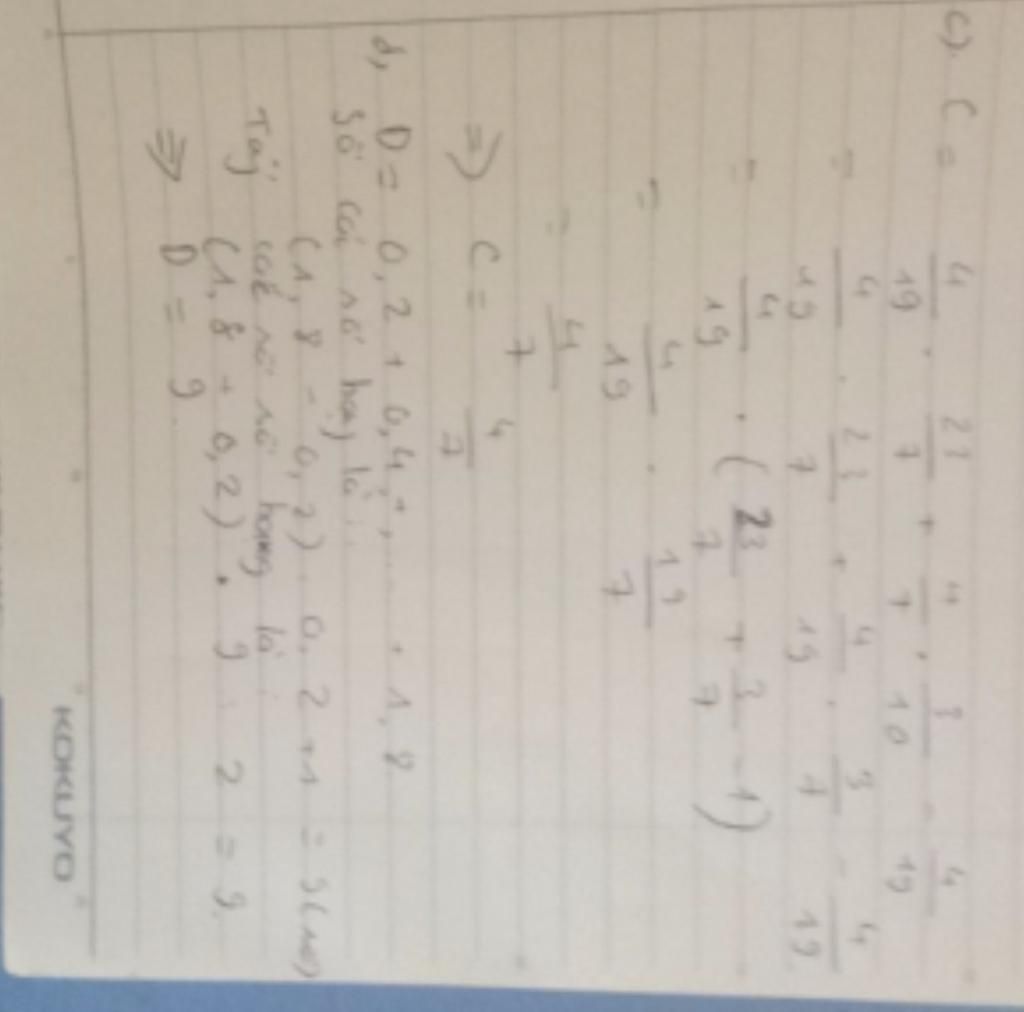 c). C = 4/19 . 23/7 + 4/7 . 3/10 - 4/19
= 4/19 . 23/7 + 4/19 . 3/7 - 4/19
= 4/19 . (23/7 + 3/7 - 1)
= 4/19 . 19/7
= 4/7
=) C = 4/7
d, D = 0,2 + 0,4 + ..... + 1,8
Số các số hạg là:
(1,8 - 0,2) . 0,2 + 1 = 9 (số)
số số hạng là:
(1,8 + 0,2) . 9 : 2 = 9
=> D = 9.
KOKUYO